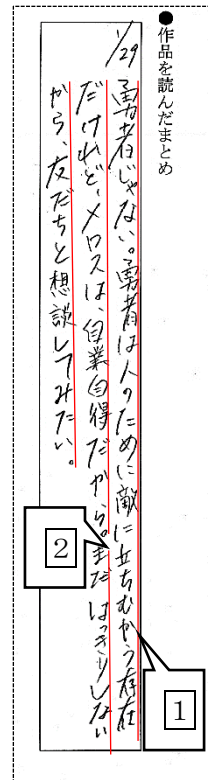 ●作品を読んだまとめ
1/29
勇者じゃない。勇者は人のために敵に立ちむかう存在
だけれど、メロスは、自業自得だから。まだはっきりしない
から、友だちと想談してみたい。
1
2